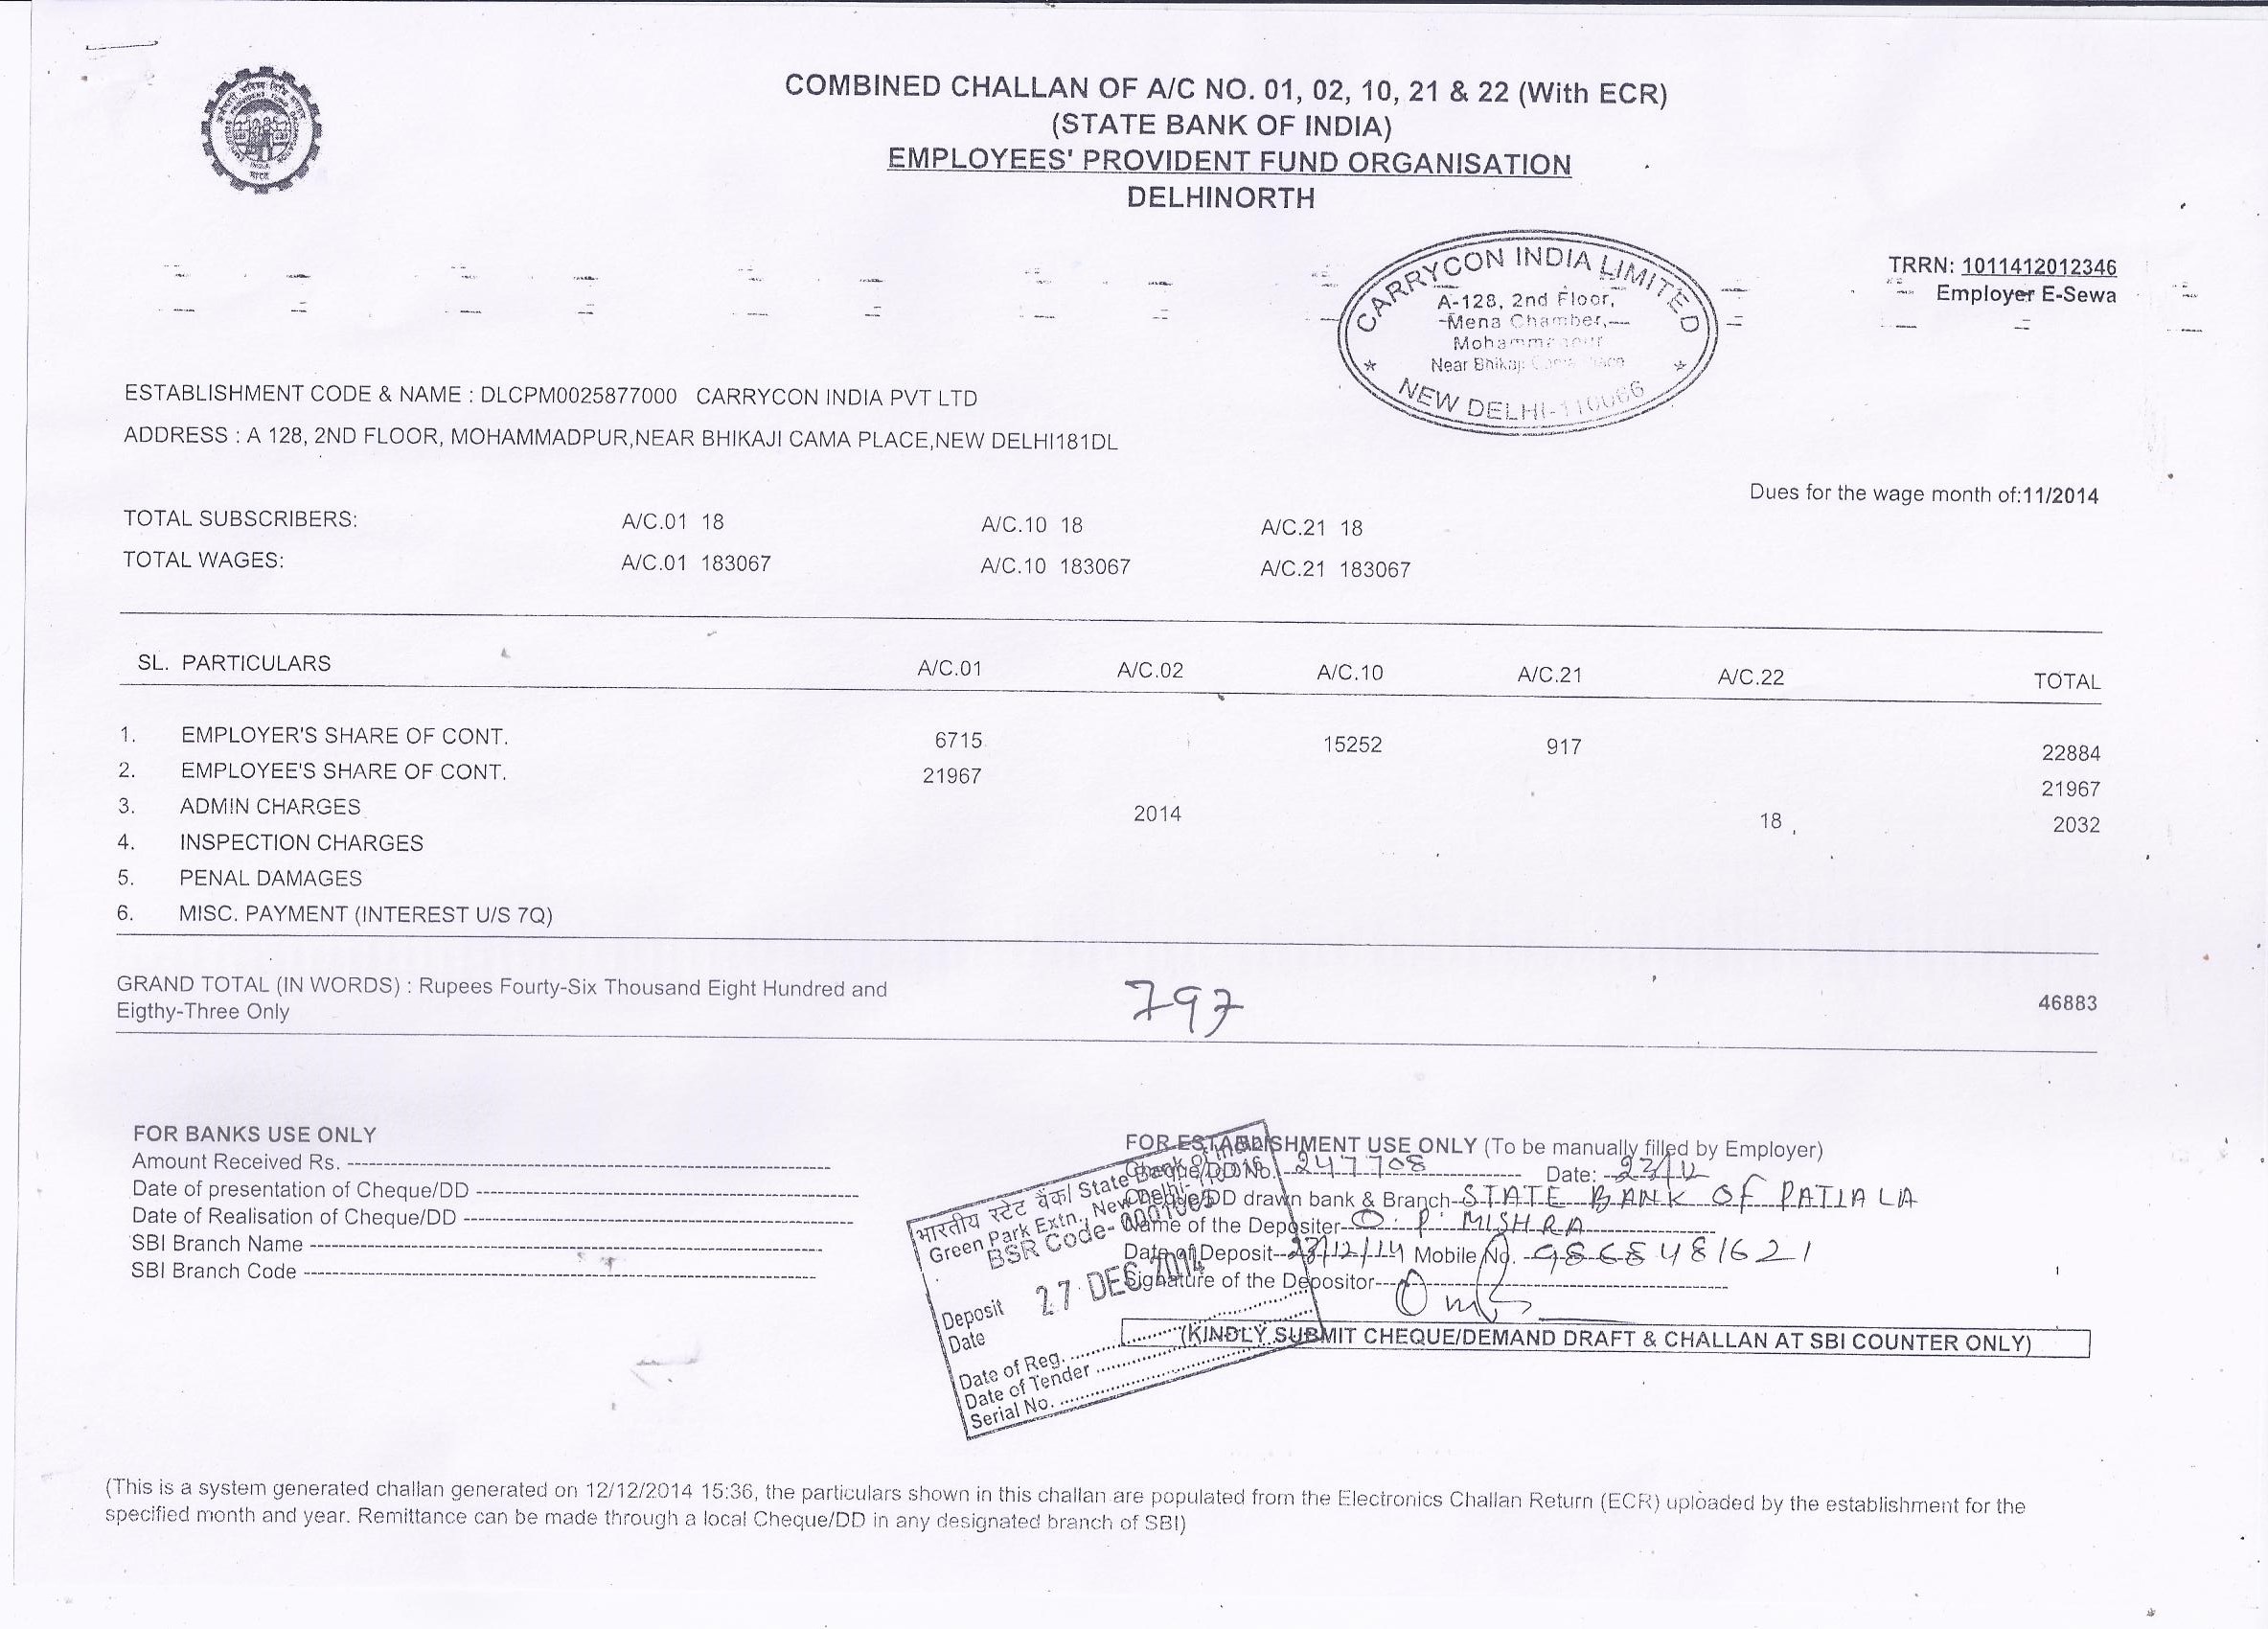 COMBINED CHALLAN OF A/C NO. 01, 02, 10, 21 & 22 (With ECR)
(STATE BANK OF INDIA)
EMPLOYEES' PROVIDENT FUND ORGANISATION
DELHINORTH
TRRN: 1011412012346
Employer E-Sewa
CARRYCON INDIA LIMITED
A-128, 2nd Floor,
Mena Chamber,
Near Bhikaji
NEW DELHI-110066
ESTABLISHMENT CODE & NAME : DLCPM0025877000 CARRYCON INDIA PVT LTD
ADDRESS : A 128, 2ND FLOOR, MOHAMMADPUR,NEAR BHIKAJI CAMA PLACE,NEW DELHI181DL
Dues for the wage month of:11/2014
TOTAL SUBSCRIBERS: A/C.01 18 A/C.10 18 A/C.21 18
TOTAL WAGES: A/C.01 183067 A/C.10 183067 A/C.21 183067
SL. PARTICULARS A/C.01 A/C.02 A/C.10 A/C.21 A/C.22 TOTAL
1. EMPLOYER'S SHARE OF CONT. 6715 15252 917 22884
2. EMPLOYEE'S SHARE OF CONT. 21967 21967
3. ADMIN CHARGES 2014 18 2032
4. INSPECTION CHARGES
5. PENAL DAMAGES
6. MISC. PAYMENT (INTEREST U/S 7Q)
GRAND TOTAL (IN WORDS) : Rupees Fourty-Six Thousand Eight Hundred and
Eigthy-Three Only
797
46883
FOR BANKS USE ONLY
Amount Received Rs.
Date of presentation of Cheque/DD
Date of Realisation of Cheque/DD
SBI Branch Name
SBI Branch Code
FOR ESTABLISHMENT USE ONLY (To be manually filled by Employer)
Cheque/DD No. 247708 Date: 23/12
Cheque/DD drawn bank & Branch STATE BANK OF PATIALA
Name of the Depositer O. P. MISHRA
Date of Deposit 23/12/14 Mobile No. 9868481621
Signature of the Depositor
(KINDLY SUBMIT CHEQUE/DEMAND DRAFT & CHALLAN AT SBI COUNTER ONLY)
भारतीय स्टेट बैंक/ State Bank of India
Green Park Extn., New Delhi-110016
BSR Code- 0001065
Deposit 27 DEC 2014
Date
Date of Reg.
Date of Tender
Serial No.
(This is a system generated challan generated on 12/12/2014 15:36, the particulars shown in this challan are populated from the Electronics Challan Return (ECR) uploaded by the establishment for the
specified month and year. Remittance can be made through a local Cheque/DD in any designated branch of SBI)